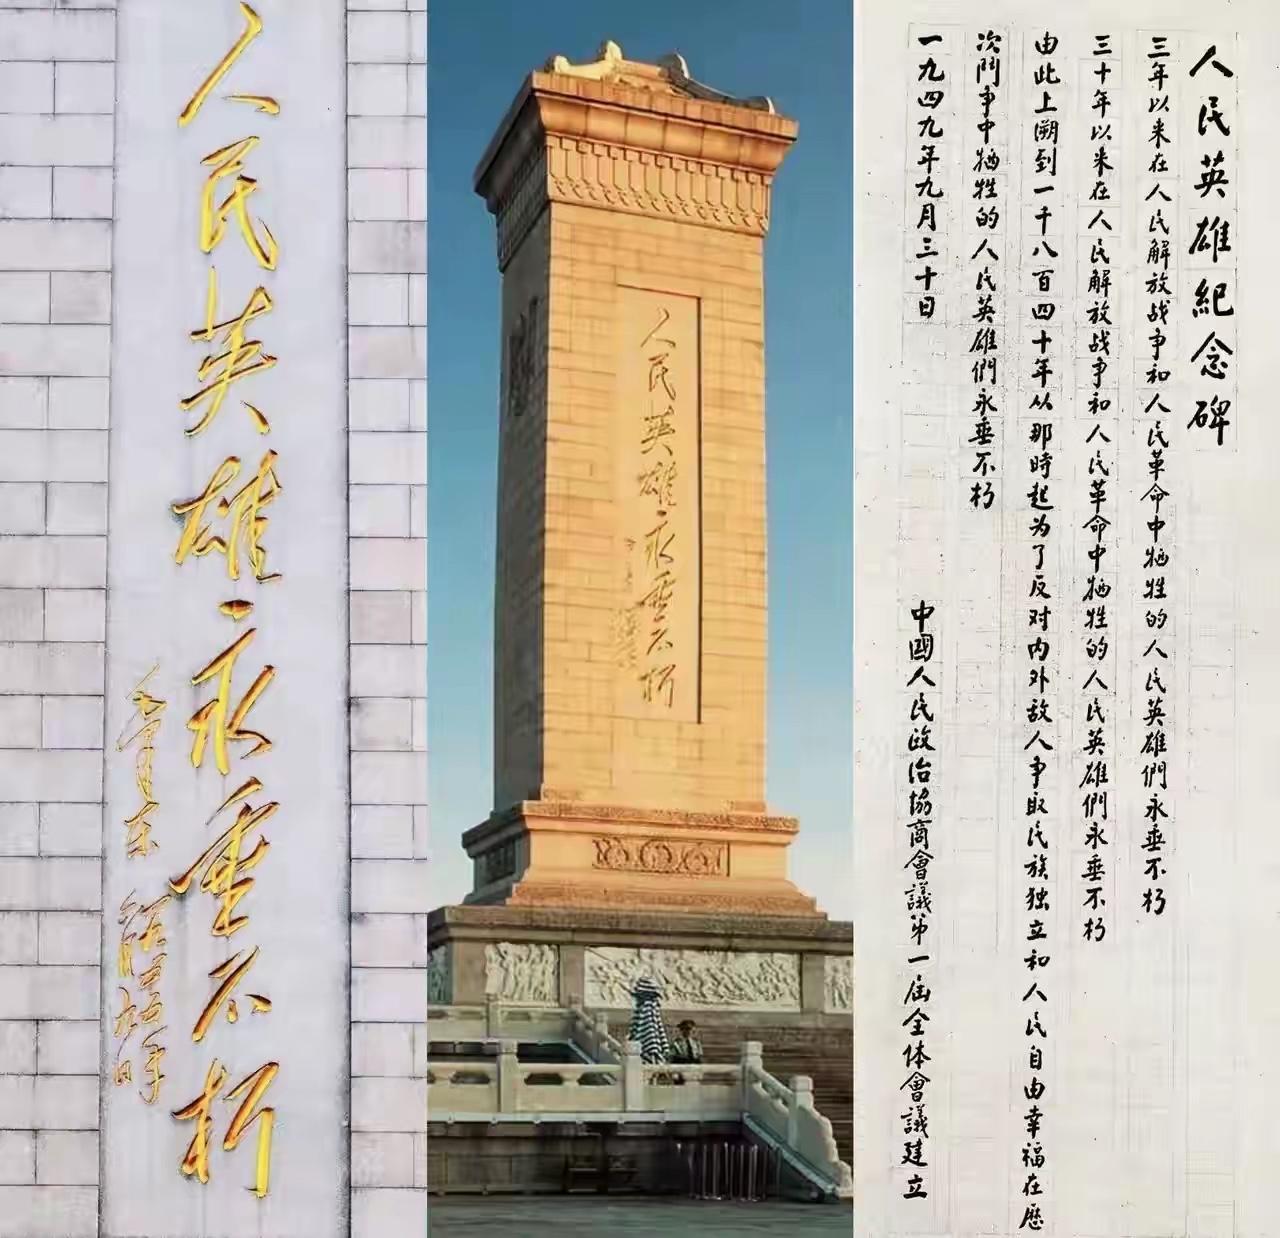 人民英雄永垂不朽
毛泽东
人民英雄永垂不朽
人民英雄紀念碑
三年以来在人民解放战争和人民革命中牺牲的人民英雄們永垂不朽
三十年以来在人民解放战争和人民革命中牺牲的人民英雄們永垂不朽
由此上溯到一千八百四十年从那時起为了反对内外敌人争取民族独立和人民自由幸福在歷
次鬥争中牺牲的人民英雄們永垂不朽
一九四九年九月三十日
中國人民政治協商會議第一届全体會議建立